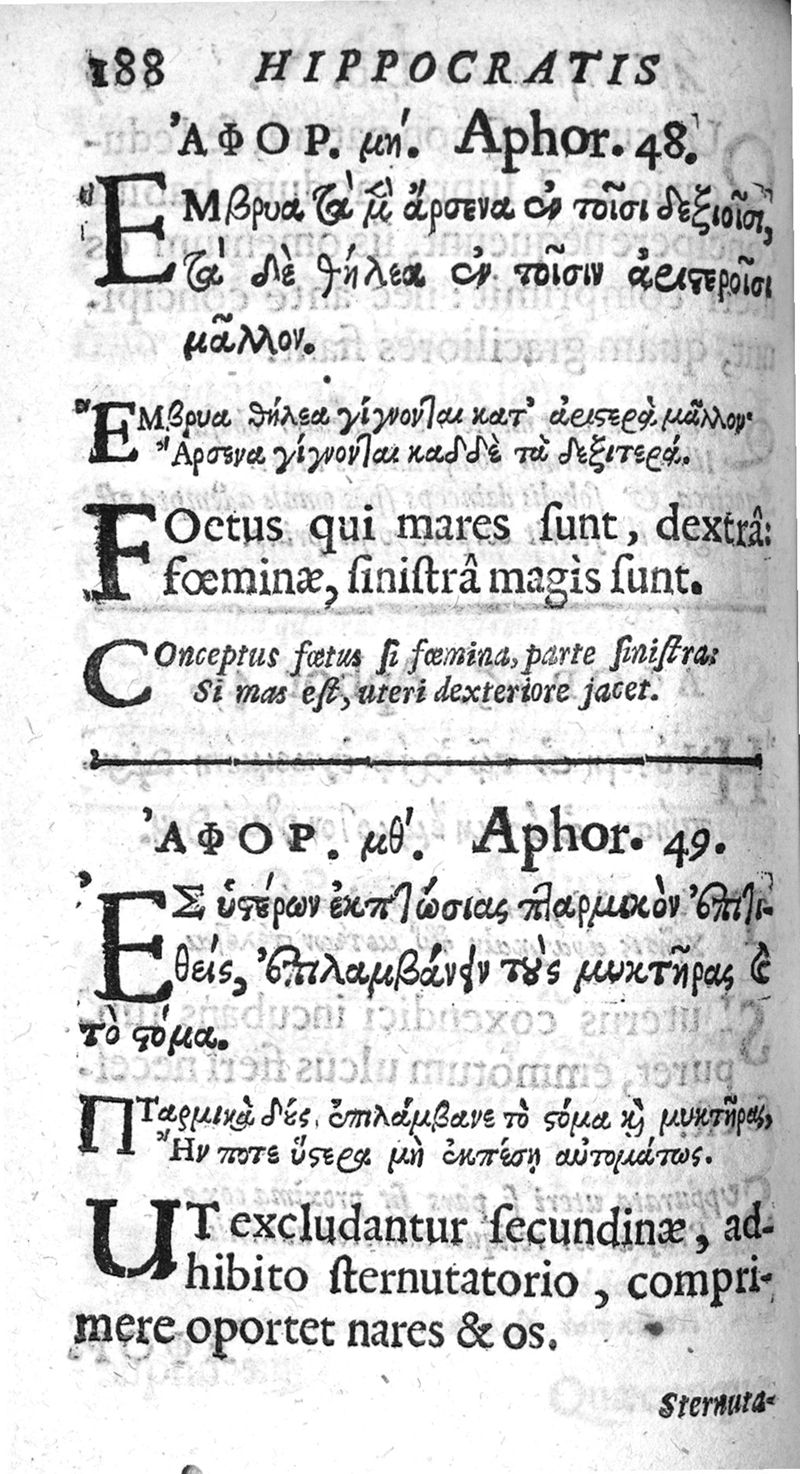 188 HIPPOCRATIS
ἈΦΟΡ. μή. Aphor. 48.
ἜΜβρυα τὰ μ̂ ἄρσενα ἐν τοῖσι δεξιοῖσι,
τὰ δὲ θήλεα ἐν τοῖσιν ἀριϛεροῖσι
μᾶλλον.
ἜΜβρυα θήλεα γίγνονται κατ' ἀριϛερὰ μᾶλλον·
Ἄρσενα γίγνονται καδδὲ τὰ δεξιτερά.
FOetus qui mares ſunt, dextrâ:
fœminæ, ſiniſtrâ magìs ſunt.
COnceptus fœtus ſi fœmina, parte ſiniſtra:
Si mas eſt, uteri dexteriore jacet.
ἈΦΟΡ. μθ'. Aphor. 49.
ἘΣ ὑϛέρων ἐκπτώσιας πταρμικὸν ἐπιτι-
θείς, ἐπιλαμβάνειν τοὺς μυκτῆρας ϗ
τὸ ϛόμα.
ΠΤαρμικὰ δούς, ἐπιλάμβανε τὸ ϛόμα ϗ μυκτῆρας,
Ἢν ποτε ὕϛερα μὴ ἐκπέσῃ αὐτομάτως.
UT excludantur ſecundinæ, ad-
hibito ſternutatorio, compri-
mere oportet nares & os.
Sternuta-